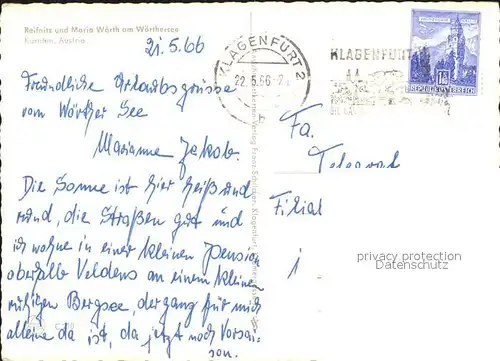 Reifnitz und Maria Wörth am Wörthersee
Kärnten, Austria
21.5.66
Freundliche Urlaubsgrüsse
vom Wörther See
Marianne Jakob.
Die Sonne ist hier heiß und
rund, die Straßen gut und
ich wohne in einer kleinen Pension
oberhalb Veldens an einem kleinen
ruhigen Bergsee, der ganz für mich
alleine da ist, da jetzt noch Vorsai-
son.
KLAGENFURT 2
22.5.66
b
KLAGENFURT
REPUBLIK ÖSTERREICH
Fa.
Filial
privacy protection
Datenschutz